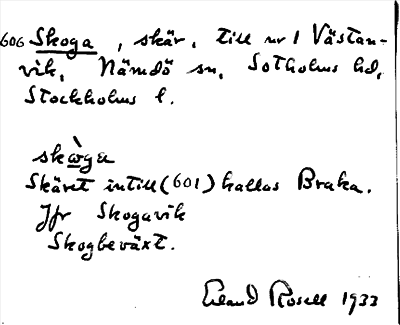 606 Skoga, skär, till nr 1 Västan-
vik, Nämdö sn, Sotholms hd,
Stockholms l.
skò̲ga
Skäret intill (601) kallas Braka.
Jfr Skogavik
Skogbeväxt.
Erland Rosell 1933